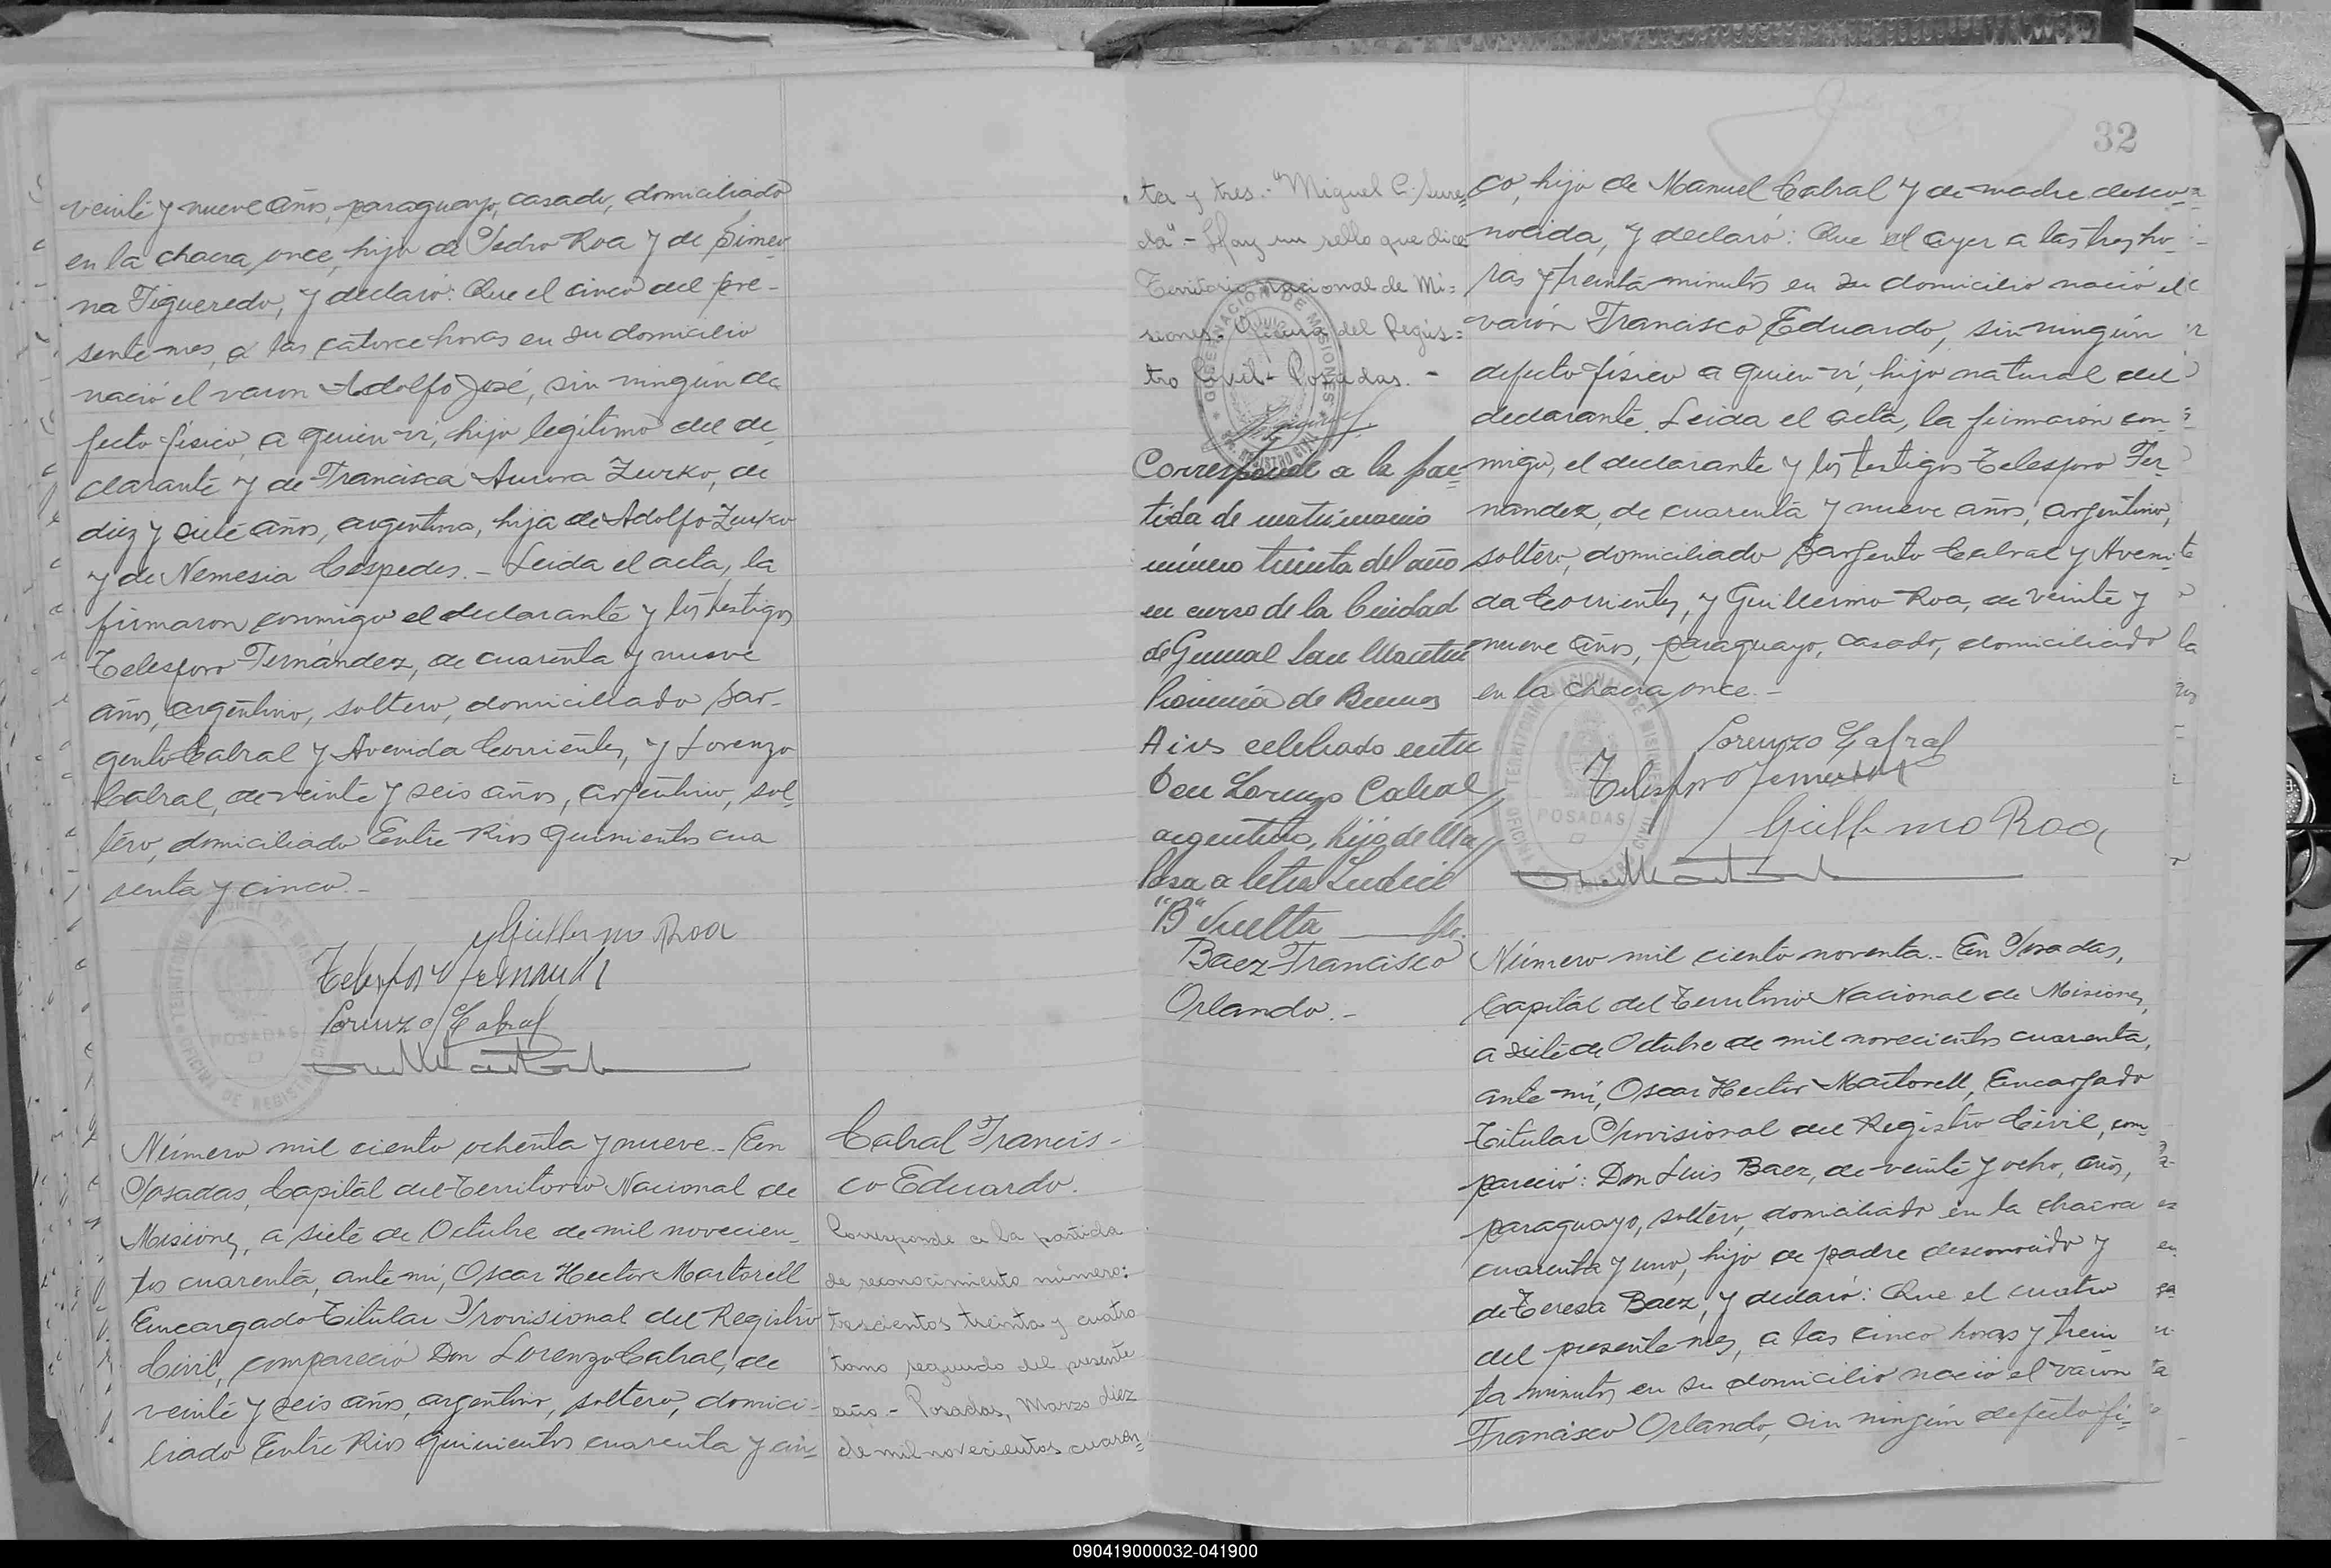 veinte y nueve años, paraguayo, casado, domiciliado
en la chacra once, hijo de Pedro Roa y de Sime
na Figueredo, y declaró: Que el cinco del pre-
sente mes, a las catorce horas en su domicilio
nació el varon Adolfo José, sin ningún de
fecto físico, a quien ví, hijo legítimo del de
clarante y de Francisca Aurora Zurko, de
diez y siete años, argentina, hija de Adolfo Zurko
y de Nemesia Cespedes.- Leida el acta, la
firmaron conmigo el declarante y los testigos
Telesforo Fernández, de cuarenta y nueve
años, argentino, soltero, domiciliado Sar-
gento Cabral y Avenida Corrientes, y Lorenzo
Cabral, de veinte y seis años, argentino, sol
tero, domiciliado Entre Rios quinientos cua
renta y cinco.-
Guillermo Roa
Telesforo Fernandez
Lorenzo Cabral
TERRITORIO NACIONAL DE MISIONES
POSADAS
OFICINA DE REGISTRO CIVIL
Número mil ciento ochenta y nueve.- En
Posadas, Capital del Territorio Nacional de
Misiones, a siete de Octubre de mil novecien-
tos cuarenta, ante mí, Oscar Hector Martorell
Encargado Titular Provisional del Registro
Civil, compareció Don Lorenzo Cabral, de
veinte y seis años, argentino, soltero, domici-
liado Entre Rios quinientos cuarenta y cin-
Cabral Francis-
co Eduardo.
Corresponde a la partida
de reconocimiento número:
trescientos treinta y cuatro
tomo segundo del presente
año - Posadas, Marzo diez
de mil novecientos cuaren=
ta y tres.- "Miguel C.
da" - Hay un sello que dice
Territorio Nacional de Mi=
siones. Oficina del Regis=
tro Civil - Posadas. -
GOBERNACION DE MISIONES
REGISTRO CIVIL
Corresponde a la par=
tida de matrimonio
número treinta del año
en curso de la Ciudad
de General San Martin
Provincia de Buenos
Aires celebrado entre
Don Lorenzo Cabral
argentino, hijo de Ma
Pasa a letra Indice
"B" vuelta
Baez Francisco
Orlando.-
32
co, hijo de Manuel Cabral y de madre desco-
nocida, y declaró: Que el ayer a las tres ho-
ras y treinta minutos en su domicilio nació el
varón Francisco Eduardo, sin ningún
defecto físico a quien ví, hijo natural del
declarante. Leida el acta, la firmaron con-
migo, el declarante y los testigos Telesforo Fer-
nández, de cuarenta y nueve años, argentino,
soltero, domiciliado Sargento Cabral y Aveni-
da Corrientes, y Guillermo Roa, de veinte y
nueve años, paraguayo, casado, domiciliado
en la chacra once.-
Lorenzo Cabral
Telesforo Fernandez
Guillermo Roa
TERRITORIO NACIONAL DE MISIONES
POSADAS
OFICINA DE REGISTRO CIVIL
Número mil ciento noventa.- En Posadas,
Capital del Territorio Nacional de Misiones,
a siete de Octubre de mil novecientos cuarenta,
ante mí, Oscar Hector Martorell, Encargado
Titular Provisional del Registro Civil, com-
pareció: Don Luis Baez, de veinte y ocho, años,
paraguayo, soltero, domiciliado en la chacra
cuarenta y uno, hijo de padre desconocido y
de Teresa Baez, y declaró: Que el cuatro
del presente mes, a las cinco horas y trein
ta minutos en su domicilio nació el varon
Francisco Orlando, sin ningún defecto fí-
090419000032-041900